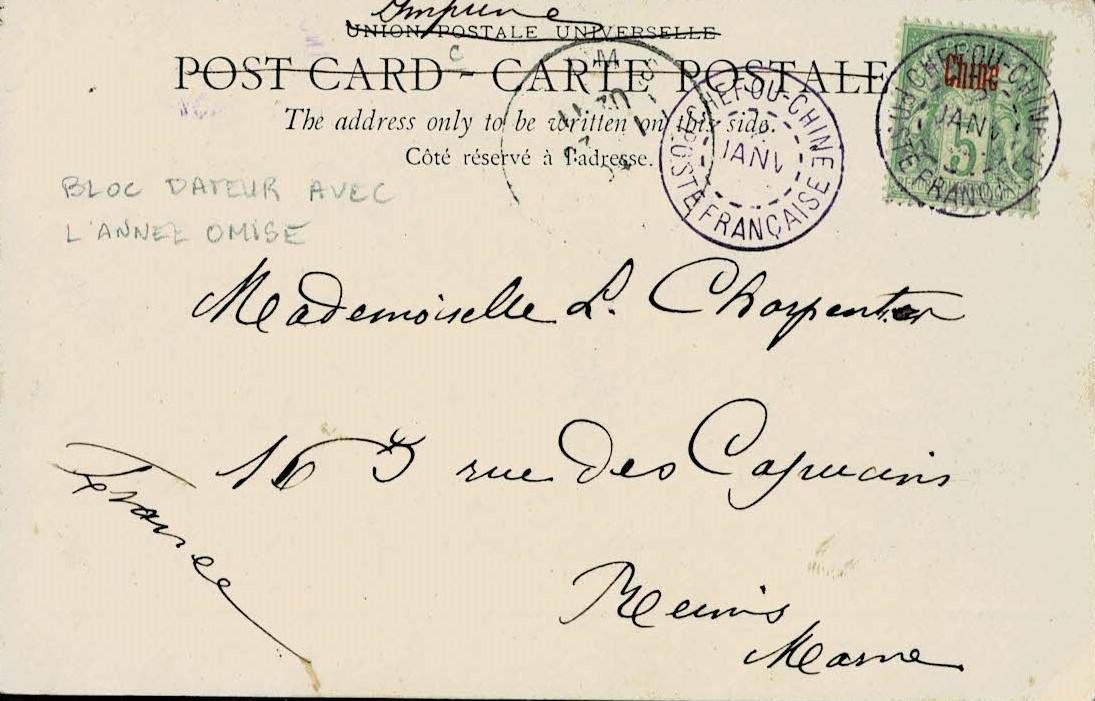 Imprimé
UNION POSTALE UNIVERSELLE
POST CARD - CARTE POSTALE
The address only to be written on this side.
Côté réservé à l'adresse.
CHEFOU-CHINE
JANV
POSTE FRANÇAISE
Chine
5
CHEFOU-CHINE
JANV
POSTE FRANÇAISE
BLOC DATEUR AVEC
L'ANNEE OMISE
Mademoiselle L. Charpentier
163 rue des Capucins
France
Reims
Marne